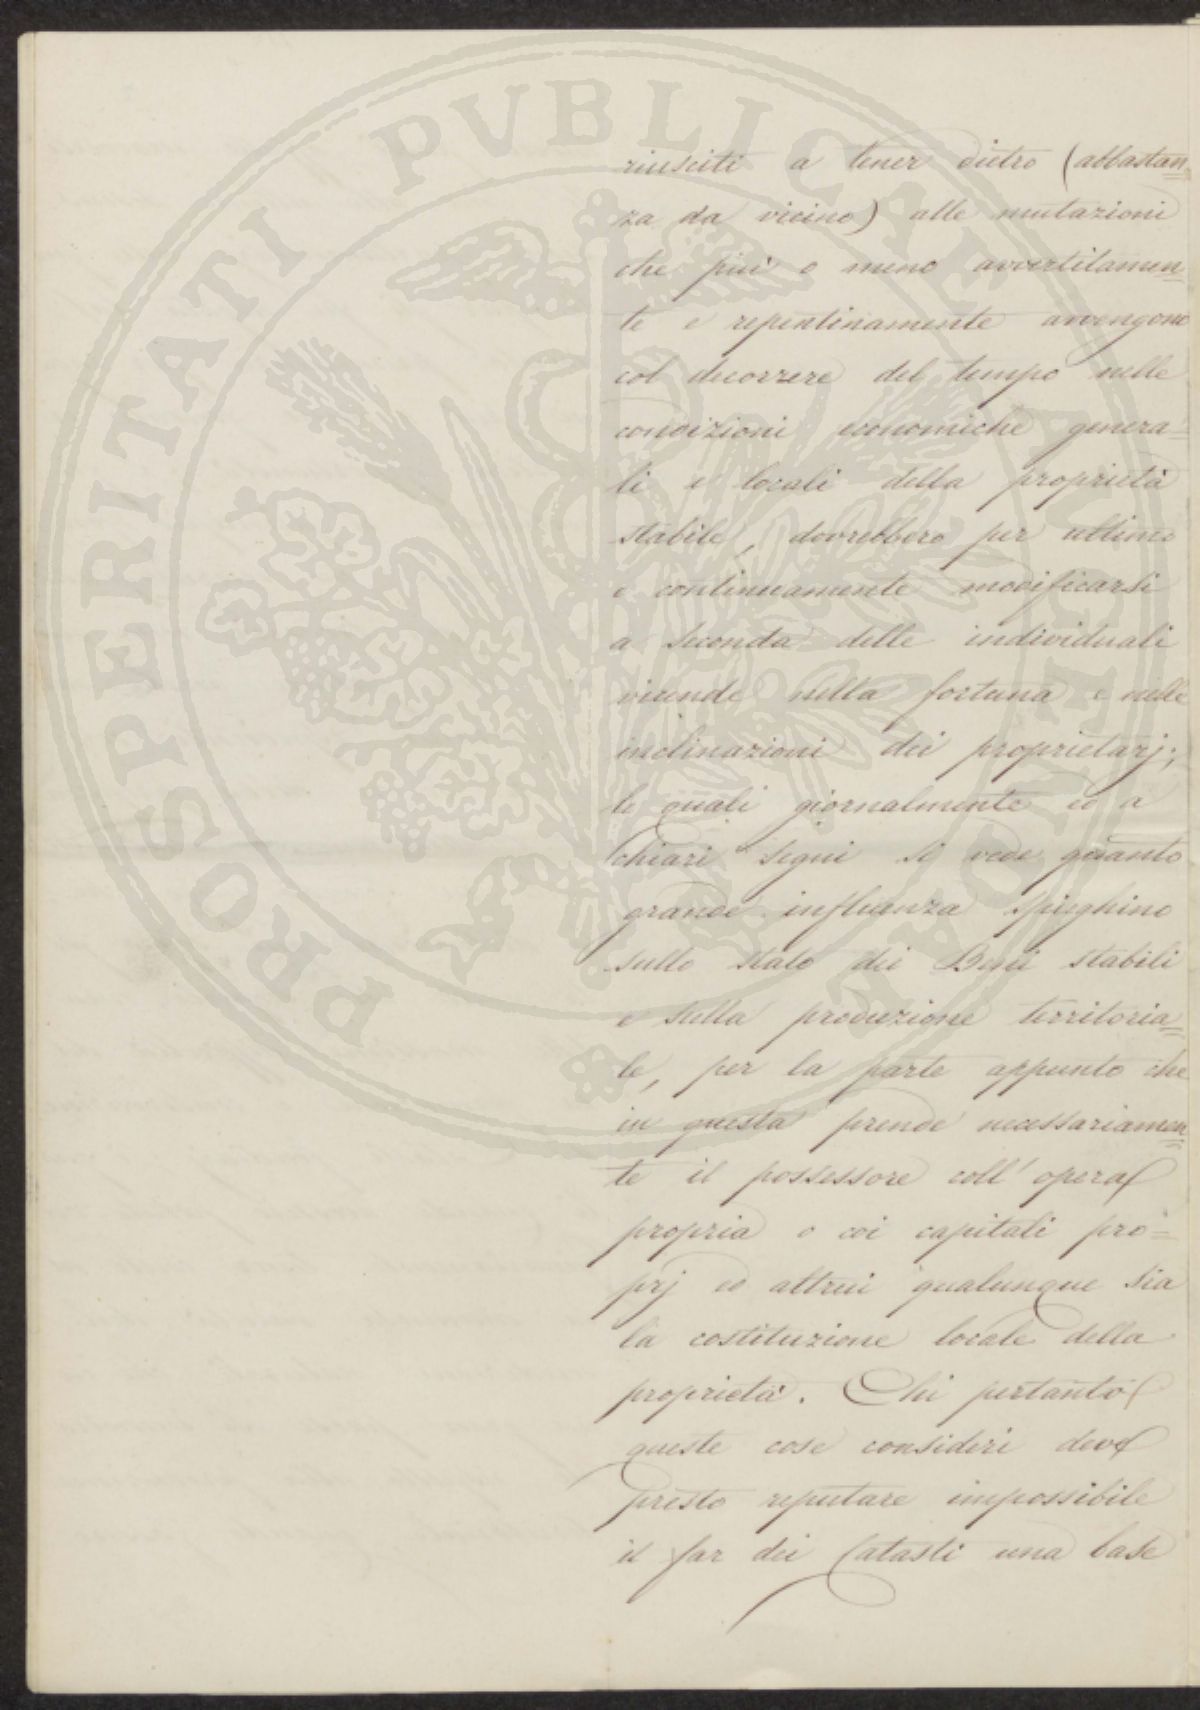 PROSPERITATI PVBLICAE AVGENDAE
riusciti a tener dietro (abbastan=
za da vicino) alle mutazioni
che più o meno avvertitamen=
te e repentinamente avvengono
col decorrere del tempo nelle
condizioni economiche genera=
li e locali della proprietà
stabile, dovrebbero per ultimo
e continuamente modificarsi
a seconda delle individuali
vicende nella fortuna e nelle
inclinazioni dei proprietarj;
le quali giornalmente ed a
chiari segni si vede quanto
grande influenza spieghino
sullo stato dei Beni stabili
e sulla produzione territoria=
le, per la parte appunto che
in questa prende necessariamen=
te il possessore coll' opera
propria o coi capitali pro=
prj ed altrui qualunque sia
la costituzione locale della
proprietà. Chi pertanto
queste cose consideri deve
presto reputare impossibile
il far dei Catasti una base